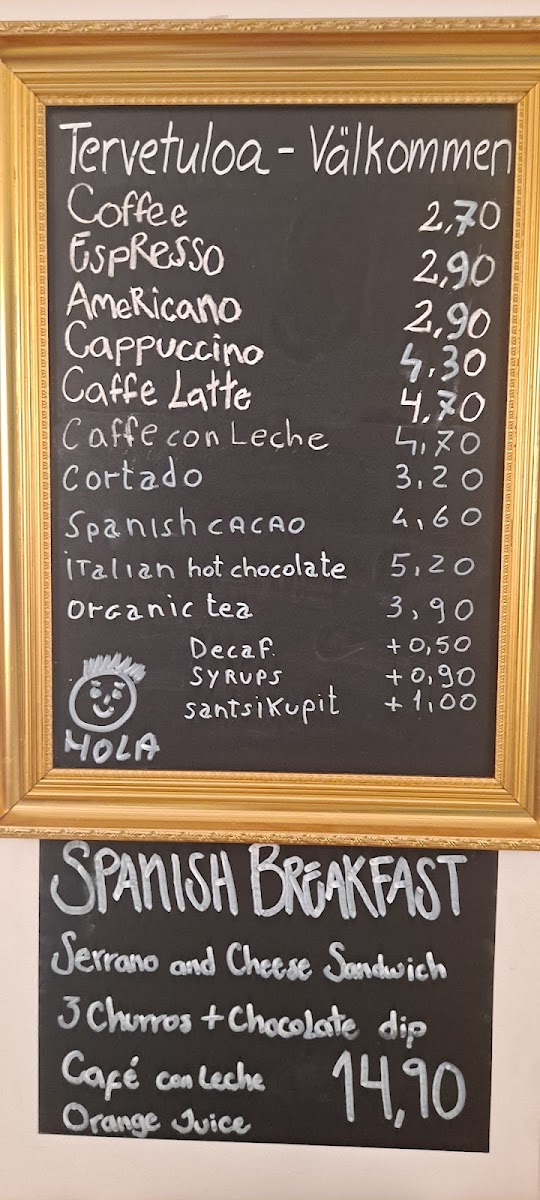 Tervetuloa - Välkommen
Coffee 2,70
Espresso 2,90
Americano 2,90
Cappuccino 4,30
Caffe Latte 4,70
Caffe con Leche 4,70
Cortado 3,20
Spanish CACAO 4,60
iTalian hot chocolate 5,20
organic tea 3,90
Decaf. +0,50
SYRUPS +0,90
santsikupit +1,00
HOLA
SPANISH BREAKFAST
Serrano and Cheese Sandwich
3 Churros + Chocolate dip
Café con Leche 14,90
Orange Juice